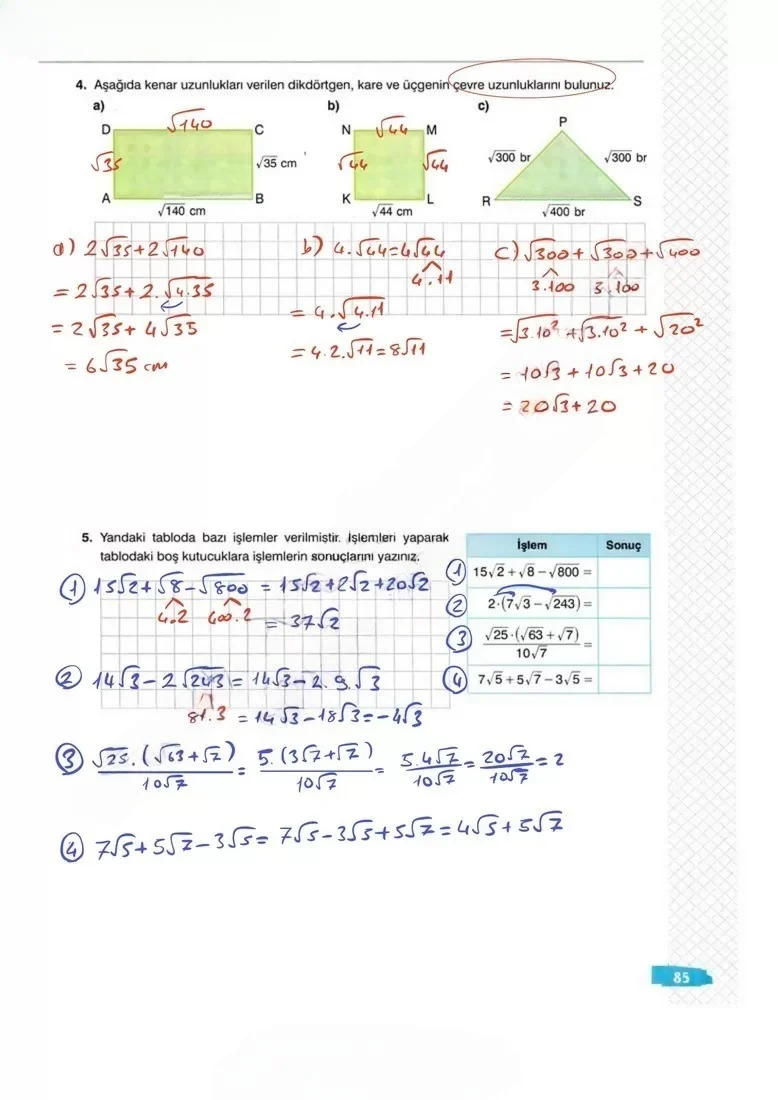 4. Aşağıda kenar uzunlukları verilen dikdörtgen, kare ve üçgenin çevre uzunluklarını bulunuz.
a) b) c)
D √140 C
√35 √35 cm
A B
√140 cm
N √44 M
√44 √44
K L
√44 cm
P
√300 br √300 br
R S
√400 br
a) 2√35+2√140
= 2√35+2.√4.35
= 2√35+4√35
= 6√35 cm
b) 4.√44=4√44
4.11
= 4.√4.11
= 4.2.√11=8√11
c) √300+√300+√400
3.100 3.100
=√3.10²+√3.10²+√20²
= 10√3+10√3+20
= 20√3+20
5. Yandaki tabloda bazı işlemler verilmiştir. İşlemleri yaparak
tablodaki boş kutucuklara işlemlerin sonuçlarını yazınız.
İşlem Sonuç
1 15√2+√8−√800 =
2 2·(7√3−√243) =
3 √25·(√63+√7) / 10√7 =
4 7√5+5√7−3√5 =
1 15√2+√8−√800 = 15√2+2√2+20√2
4.2 400.2 = 37√2
2 14√3−2√243 = 14√3−2.9.√3
81.3 = 14√3−18√3=−4√3
3 √25.(√63+√7) / 10√7 = 5.(3√7+√7) / 10√7 = 5.4√7 / 10√7 = 20√7 / 10√7 = 2
4 7√5+5√7−3√5= 7√5−3√5+5√7=4√5+5√7
85